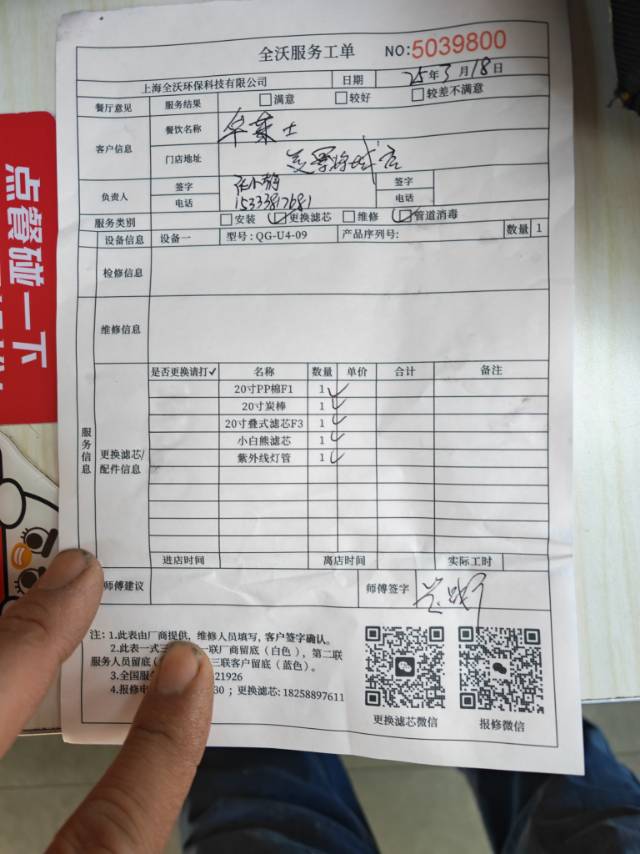 全沃服务工单 NO:5039800
上海全沃环保科技有限公司 日期 25年3月18日
餐厅意见 服务结果 满意 较好 较差不满意
客户信息 餐饮名称 华莱士
门店地址 店
负责人 签字 张小静 签字
电话 15333817681 电话
服务类别 安装 更换滤芯 维修 管道消毒
设备信息 设备一 型号: QG-U4-09 产品序列号: 数量 1
检修信息
维修信息
服务信息
更换滤芯/配件信息
是否更换请打✓ 名称 数量 单价 合计 备注
20寸PP棉F1 1 ✓
20寸炭棒 1 ✓
20寸叠式滤芯F3 1 ✓
小白熊滤芯 1 ✓
紫外线灯管 1 ✓
进店时间 离店时间 实际工时
师傅建议 师傅签字
注: 1.此表由厂商提供, 维修人员填写, 客户签字确认。
2.此表一式三 一联厂商留底 (白色), 第二联
服务人员留底 三联客户留底 (蓝色)。
3.全国服 21926
4.报修 30 ; 更换滤芯: 18258897611
更换滤芯微信 报修微信
点餐碰一下